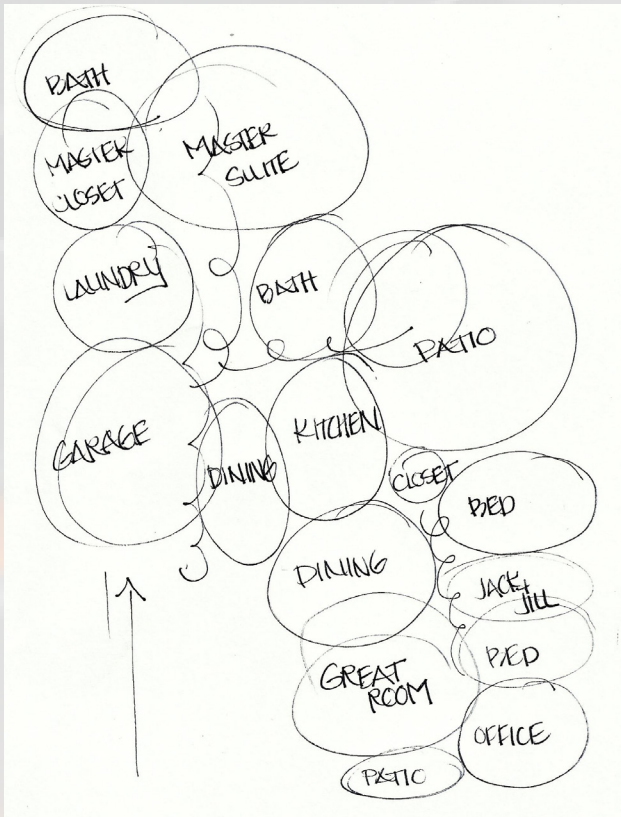 BATH
MASTER
CLOSET
MASTER
SUITE
LAUNDRY
BATH
PATIO
GARAGE
DINING
KITCHEN
CLOSET
BED
DINING
JACK+
JILL
BED
GREAT
ROOM
OFFICE
PATIO